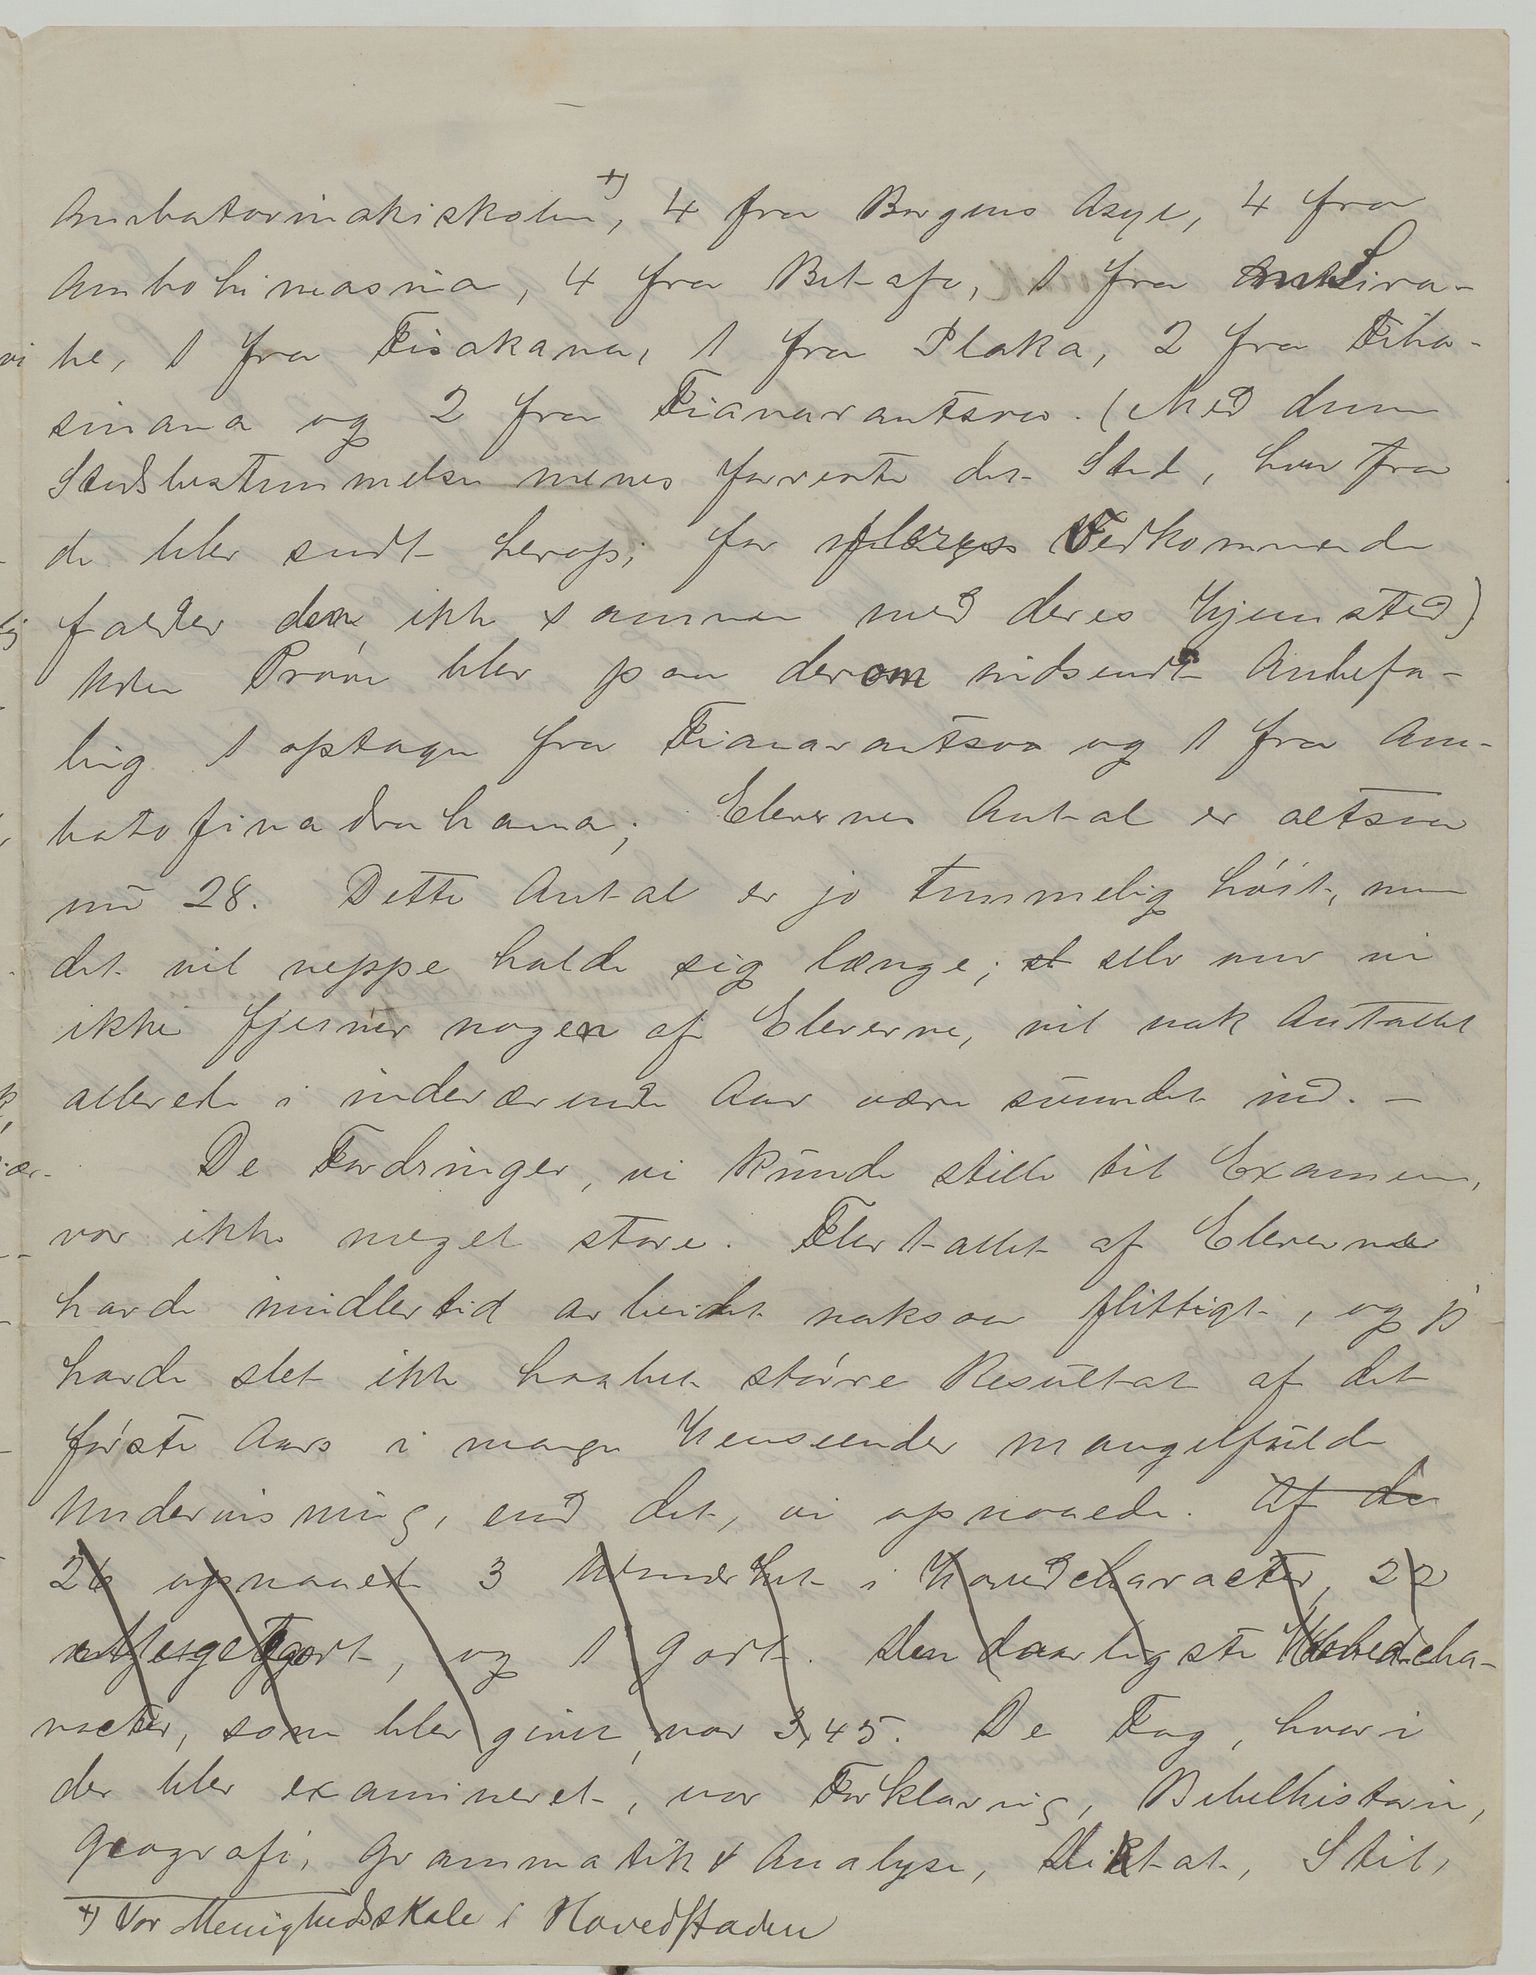 Ambatovinakiskolen +), 4 fra Bergens Asyl, 4 fra
Ambohimasina, 4 fra Betafo, 1 fra Antsira-
be, 1 fra Fisakana, 1 fra Ilaka, 2 fra Fiha-
sinana og 2 fra Fianarantsoa. (Med denne
Stedsbestemmelse menes forresten det Sted, hvorfra
de blev sendt herop; for Vedkommende
falder den ikke sammen med deres Hjemsted)
Uden Prøve blev paa derom indsendt Anbefa-
ling 1 optagen fra Fianarantsoa og 1 fra Am-
batofinadrahana; Elevernes Antal er altsaa
nu 28. Dette Antal er jo temmelig høit, men
det vil neppe holde sig længe; selv om vi
ikke fjerner nogen af Eleverne, vil nok Antallet
allerede i indeværende Aar være svundet ind. –
De Fordringer, vi kunde stille til Examen,
var ikke meget store. Flertallet af Eleverne
havde imidlertid arbeidet noksaa flittigt, og jeg
havde slet ikke haabet større Resultat af det
første Aars i mange Henseender mangelfulde
Undervisning, end det, vi opnaaede. Af de
26 opnaaede 3 Udmærket i Hovedcharacter, 22
meget godt, og 1 godt. Den daarligste Hovedcha-
racter, som blev givet, var 3,45. De Fag, hvori
der blev examineret, var Forklaring, Bibelhistorie,
Geografi, Grammatik & Analyse, Diktat, Stil,
+) Vor Menighedsskole i Hovedstaden